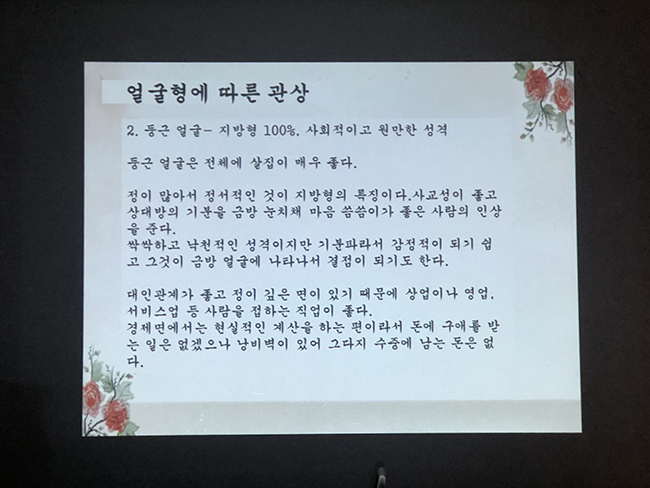 얼굴형에 따른 관상
2. 둥근 얼굴- 지방형 100%. 사회적이고 원만한 성격
둥근 얼굴은 전체에 살집이 매우 좋다.
정이 많아서 정서적인 것이 지방형의 특징이다.사교성이 좋고
상대방의 기분을 금방 눈치채 마음 씀씀이가 좋은 사람의 인상
을 준다.
싹싹하고 낙천적인 성격이지만 기분파라서 감정적이 되기 쉽
고 그것이 금방 얼굴에 나타나서 결점이 되기도 한다.
대인관계가 좋고 정이 깊은 면이 있기 때문에 상업이나 영업,
서비스업 등 사람을 접하는 직업이 좋다.
경제면에서는 현실적인 계산을 하는 편이라서 돈에 구애를 받
는 일은 없겠으나 낭비벽이 있어 그다지 수중에 남는 돈은 없
다.